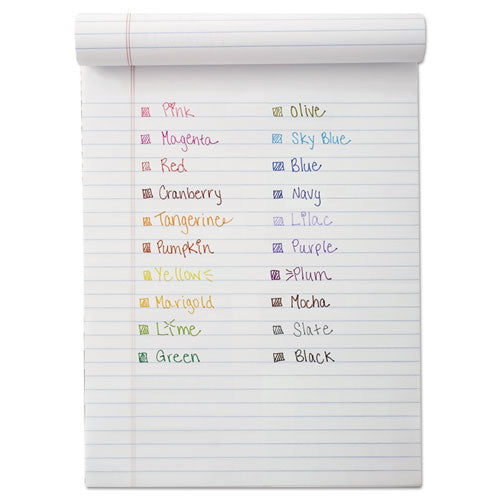 Pink
Magenta
Red
Cranberry
Tangerine
Pumpkin
Yellow
Marigold
Lime
Green
Olive
Sky Blue
Blue
Navy
Lilac
Purple
Plum
Mocha
Slate
Black